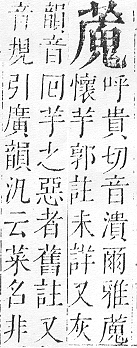 呼貴切音潰爾雅
懷芋郭註未詳又灰
韻音回芋之惡者舊註又
音規引廣韻汎云菜名非